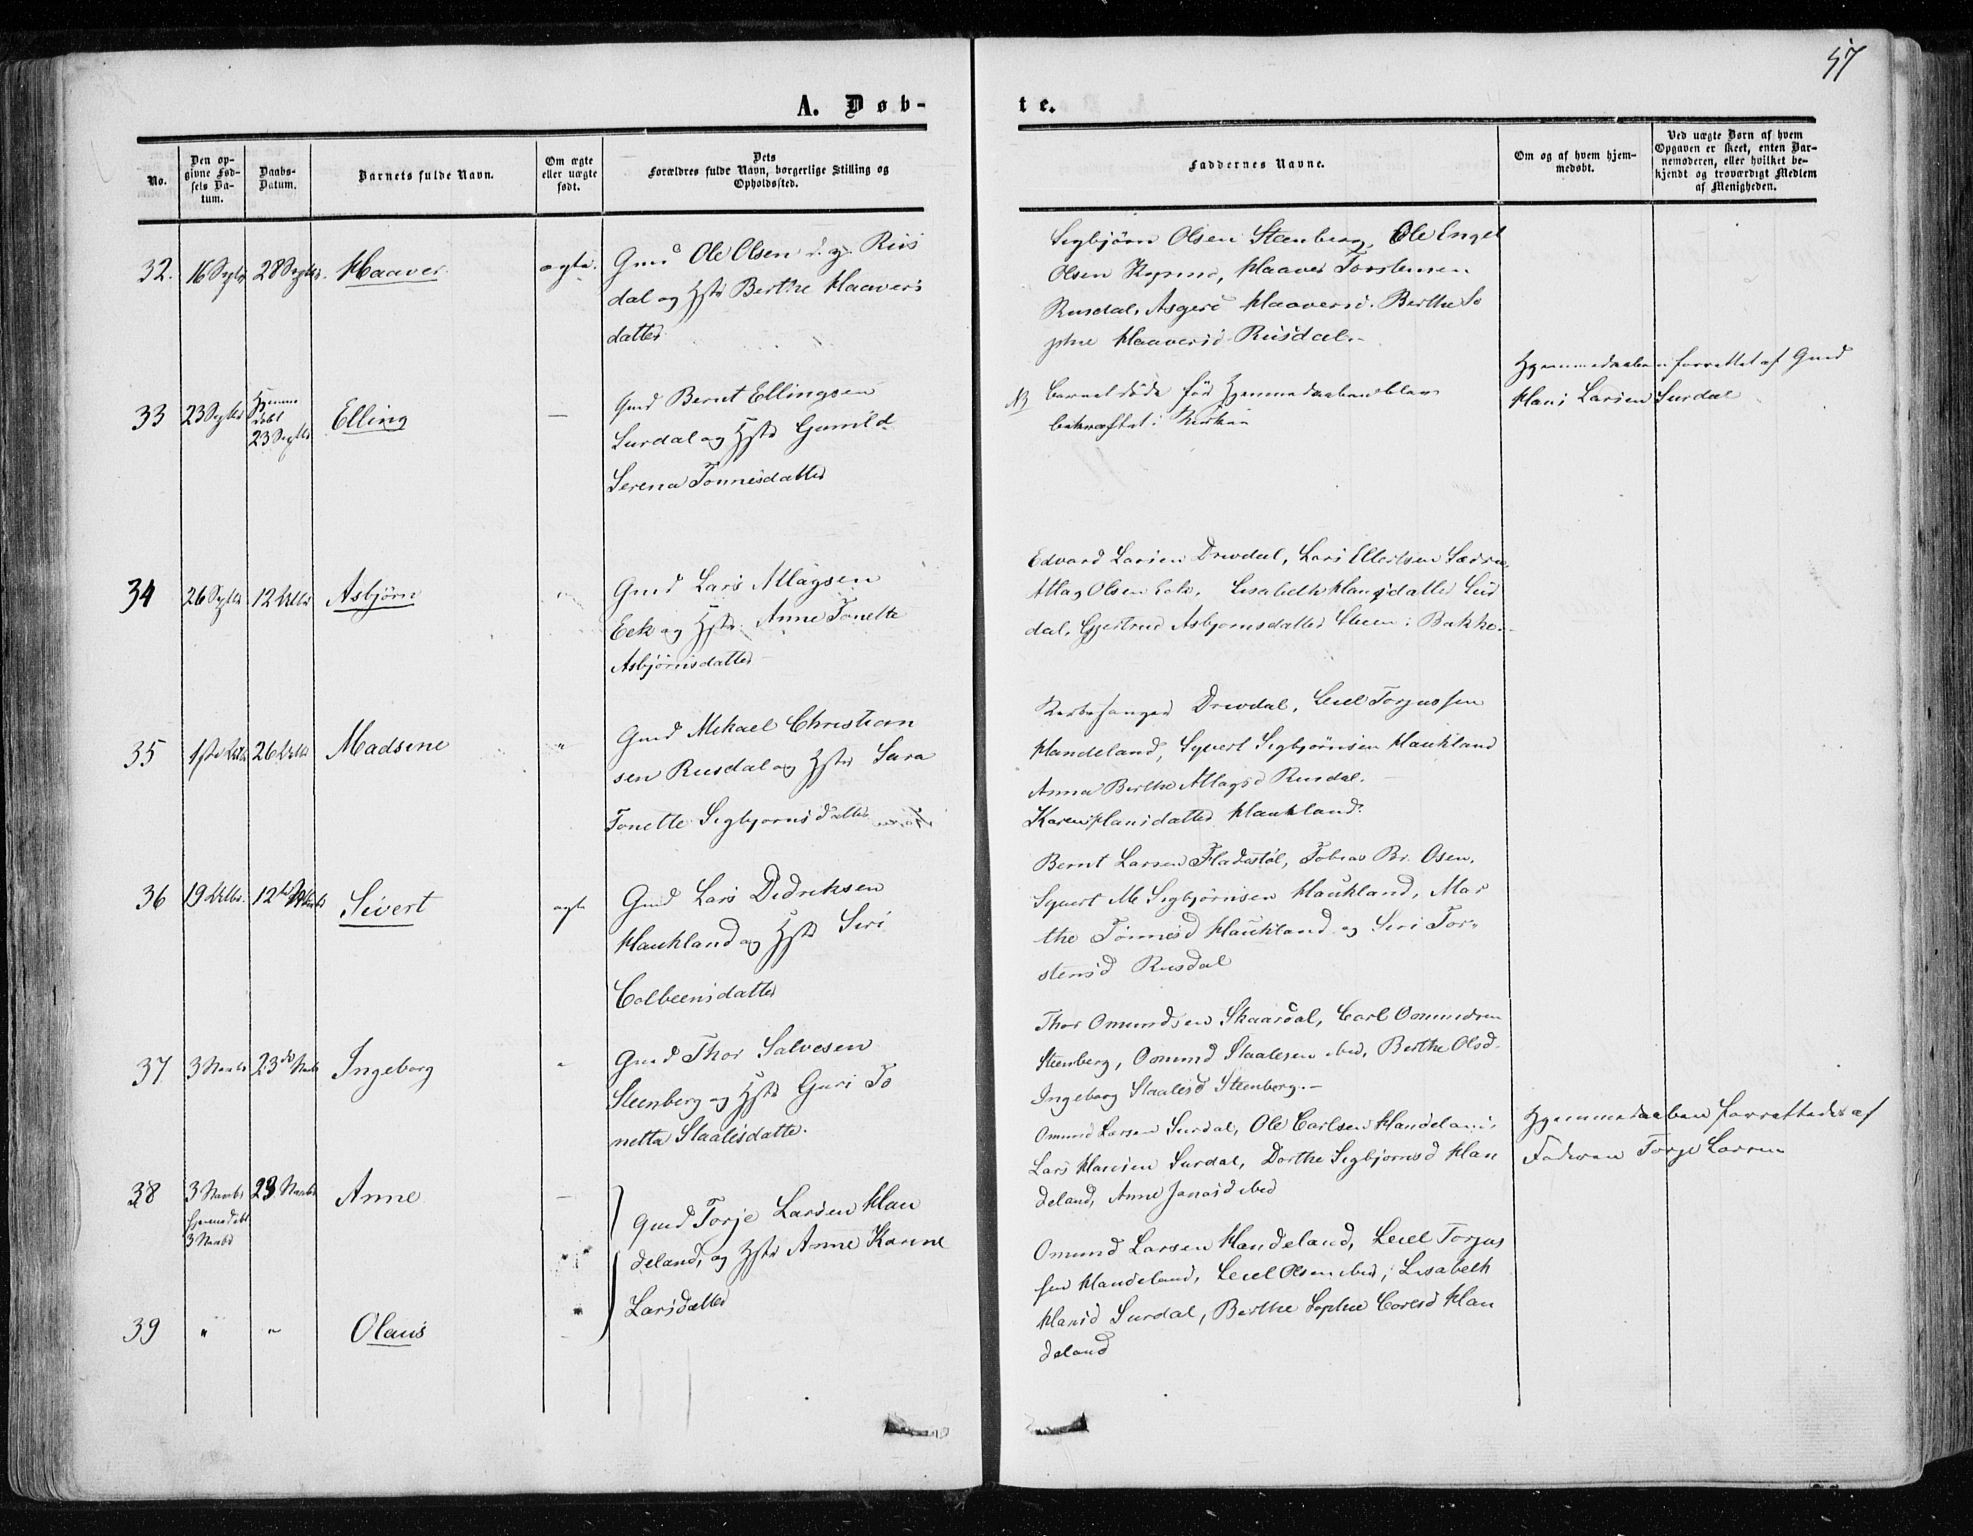 57
A. Døb-
te.
No.
Den opgivne Fødsels Datum.
Daabs-Datum.
Barnets fulde Navn.
Om ægte eller uægte født.
Dets Forældres fulde Navn, borgerlige Stilling og Opholdssted.
Faddernes Navne.
Om og af hvem hjemmedøbt.
Ved uægte Børn af hvem Opgaven er skeet, enten Barnemoderen, eller hvilket bekjendt og troværdigt Medlem af Menigheden.
32. 16 Septbr 28 Septbr. Haaver. ægte.
Gmd Ole Olsen d. y. Rus
dal og Hstr Berthe Haavers
datter
Sigbjørn Olsen Steenberg, Ole Engel
Olsen Haaver Torstensen
Rusdal, Asgeri Haaversd. Berthe So
phie Haaversd Rusdal.
33 23 Septbr Hjemme
døbt
23 Septbr Elling —
Gmd Bernt Ellingsen
Surdal og Hstr Gunild
Serena Tønnesdatter
NB Barnet døde før Hjemmedaaben blev
bekræftet i Kirken
Hjemmedaaben forrettet af Gmd
Hans Larsen Surdal
34 26 Septbr 12 Octbr Asbjørn "
Gmd Lars Atlagsen
Eek og Hstr. Anne Tonette
Asbjørnsdatter
Edvard Larsen Drivdal, Lars Ellertsen
Atlag Olsen Eek, Lisabeth Hansdatter Sur
dal, Gjertrud Asbjørnsdatter Steen i Bakke.
35 1ste Octbr 26 Octbr Madsine "
Gmd Mikael Christian
sen Rusdal og Hstr Sara
Tonette Sigbjørnsdatter
Kirkesanger Drivdal, Leul Torjussen
Handeland, Syvert Sigbjørnsen Haukland
Anna Berthe Atlagsd Rusdal.
Karen Hansdatter Haukland.
36 19 Octbr. 12te Novbr Sivert ægte
Gmd Lars Didriksen
Haukland og Hstr Siri
Colbeensdatter
Bernt Larsen Fladestøl, Tobias Br. Osen,
Syvert M Sigbjørnsen Haukland, Mar
the Tønnesd Haukland og Siri Tor-
stensd Rusdal
37 3 Novbr 23de Novbr Ingeborg "
Gmd Thor Salvesen
Steenberg og Hstr Guri To
netta Staalesdatter.
Thor Omundsen Skaardal, Carl Omundsen
Steenberg, Omund Staalesen ibid, Berthe Olsd.
Ingeborg Staalesd Steenberg.—
38 3 Novbr
hjemmedøbt
3 Novbr 23 Novbr Anne —
Gmd Torje Larsen Han
deland, og Hstr Anne Karine
Larsdatter
Omund Larsen Surdal, Ole Carlsen Handeland,
Lars Hansen Surdal, Dorthe Sigbjørnsd Han
deland, Anne Jonasd ibid
Hjemmedaaben forrettedes af
Faderen Torje Larsen
39 " " Olaus
Omund Larsen Handeland, Leul Torjus
sen Handeland, Leul Olsen ibid, Lisabeth
Hansd Surdal, Berthe Sophie Carlsd Han
deland